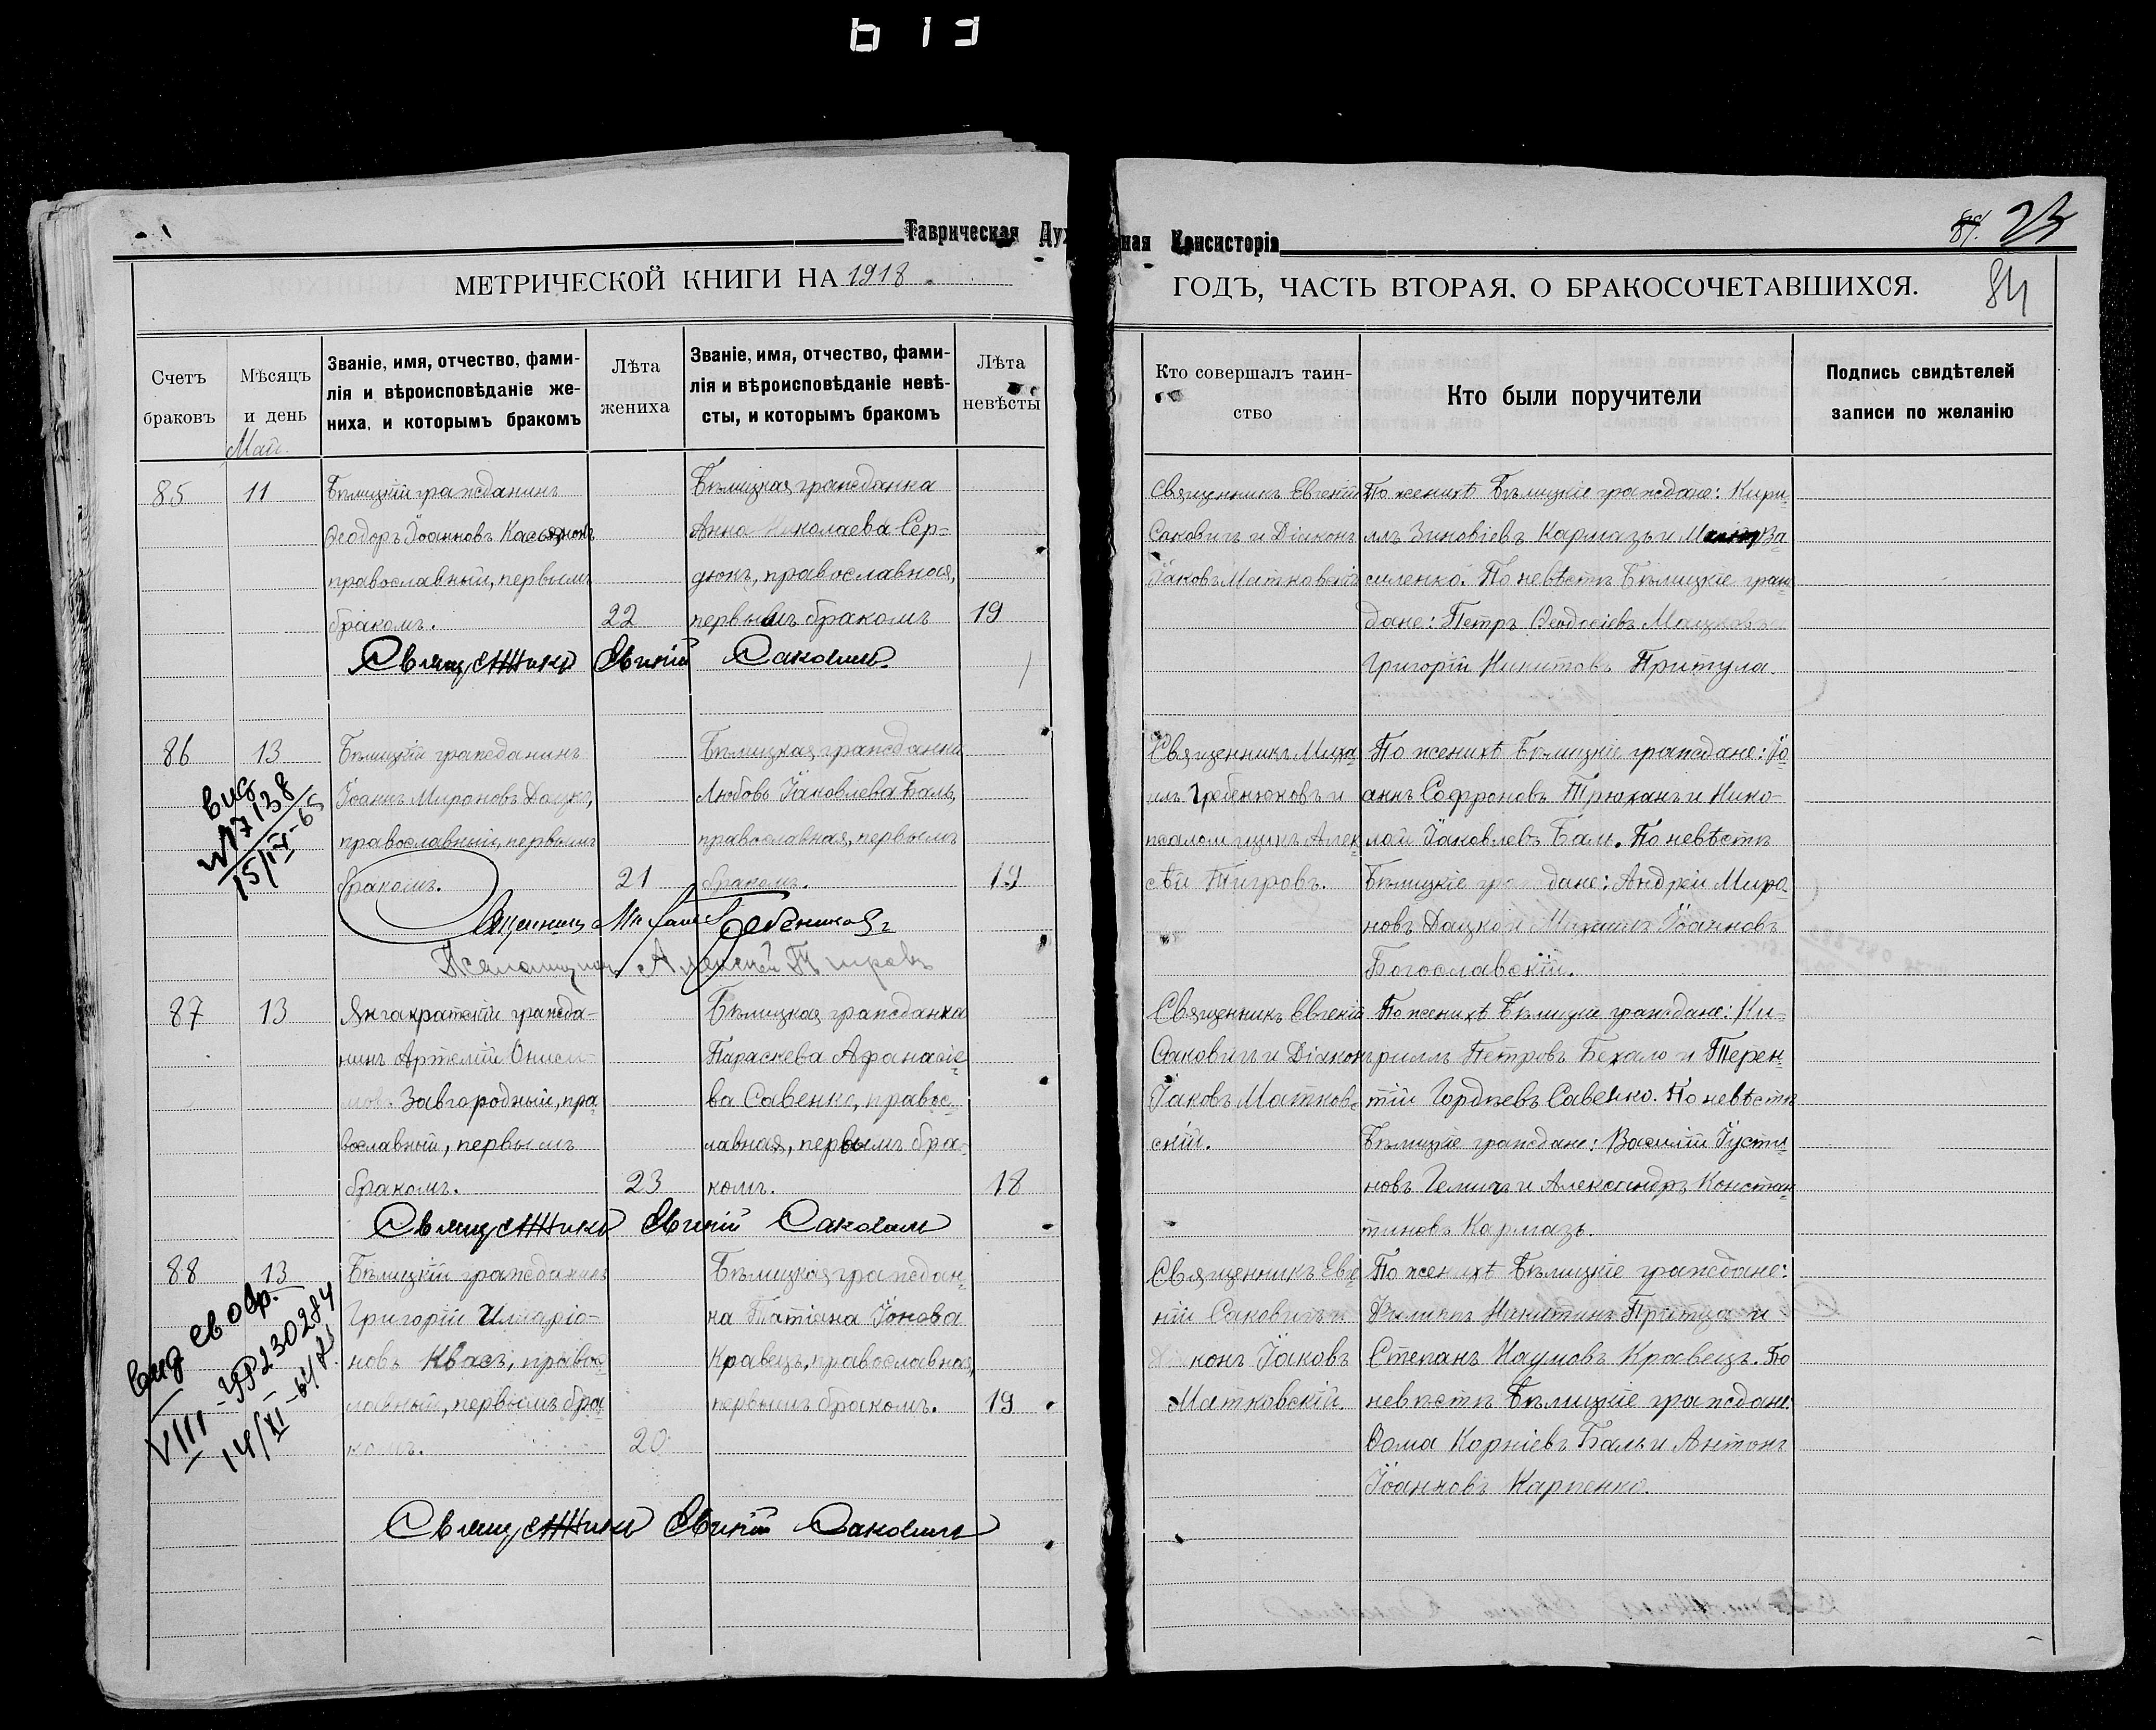 613
Таврическая Духовная Консисторія
84. 23
МЕТРИЧЕСКОЙ КНИГИ НА 1918
ГОДЪ, ЧАСТЬ ВТОРАЯ, О БРАКОСОЧЕТАВШИХСЯ.
84
Счетъ браковъ
Мѣсяцъ и день
Званіе, имя, отчество, фами-
лія и вѣроисповѣданіе же-
ниха, и которымъ бракомъ
Лѣта жениха
Званіе, имя, отчество, фами-
лія и вѣроисповѣданіе невѣ-
сты, и которымъ бракомъ
Лѣта невѣсты
Кто совершалъ таин-
ство
Кто были поручители
Подпись свидѣтелей
записи по желанію
Май.
85
11
Бѣлицкій гражданинъ
Ѳеодоръ Іоанновъ
православный, первымъ
бракомъ.
22
Бѣлицкая гражданка
Анна Николаева Сер-
дюкъ, православная,
первымъ бракомъ
19
Священникъ Евгеній
Саковичъ и Діаконъ
Іаковъ Матковскій
По женихѣ Бѣлицкіе граждане: Кири-
ллъ Зиновіевъ Кармазъ и Ва-
силенко. По невѣстѣ Бѣлицкіе граж-
дане: Петръ Ѳеодосіевъ
Григорій Никитовъ Притула.
Священникъ Евгеній Саковичъ.
86
13
вид
15/IV-65
Бѣлицкій гражданинъ
Іоаннъ Мироновъ Дацко,
православный, первымъ
бракомъ.
21
Бѣлицкая гражданка
Любовь Іаковлева Баль,
православная, первымъ
бракомъ.
19
Священникъ Миха-
илъ Гребенюковъ и
псаломщикъ Алек-
сѣй Тигровъ.
По женихѣ Бѣлицкіе граждане: Іо-
аннъ Софроновъ Трюханъ и Нико-
лай Іаковлевъ Баль. По невѣстѣ
Бѣлицкіе граждане: Андрей Миро-
новъ Дацко и Іоанновъ
Богославскій.
Священникъ Михаилъ Гребенюковъ
Псаломщикъ Алексѣй Тигровъ
87
13
гражда-
нинъ Артемій Ониси-
мовъ Завгородный, пра-
вославный, первымъ
бракомъ.
23
Бѣлицкая гражданка
Параскева Афанасіе-
ва Савенко, правос-
лавная, первымъ бра-
комъ.
18
Священникъ Евгеній
Саковичъ и Діаконъ
Іаковъ Матковс-
скій.
По женихѣ Бѣлицкіе граждане: Ки-
риллъ Петровъ Бехало и Терен-
тій Гордѣевъ Савенко. По невѣстѣ
Бѣлицкіе граждане: Василій Іусти-
новъ и Александръ Констан-
тиновъ Кармазъ.
Священникъ Евгеній Саковичъ
88
13
вид св обр.
VIII-УР 230284
14/XI-64
Бѣлицкій гражданинъ
Григорій Иларіо-
новъ Квасъ, правос-
лавный, первымъ бра-
комъ.
20
Бѣлицкая граждан-
ка Татіана Іонова
Кравецъ, православная,
первымъ бракомъ.
19
Священникъ Евге-
ній Саковичъ и
Діаконъ Іаковъ
Матковскій.
По женихѣ Бѣлицкіе граждане:
Филиппъ Никитинъ и
Степанъ Наумовъ Кравецъ. По
невѣстѣ Бѣлицкіе граждане:
Ѳома Корніевъ Баль и Антонъ
Іоанновъ Карпенко.
Священникъ Евгеній Саковичъ